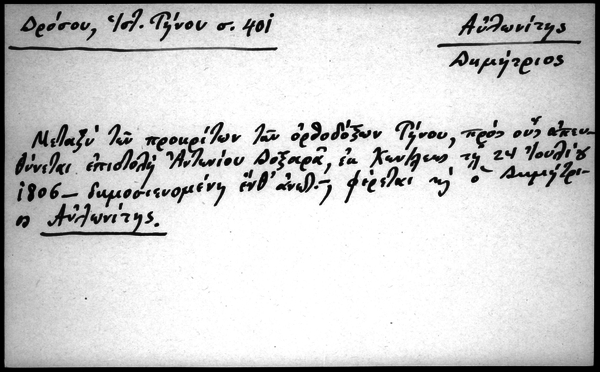 Δρόσου, Ἱστ. Τήνου σ. 401
Αὐλωνίτης
Δημήτριος
Μεταξὺ τῶν προκρίτων τῶν ὀρθοδόξων Τήνου, πρὸς οὓς ἀπευ-
θύνεται ἐπιστολὴ Ἀντωνίου Δοξαρᾶ, ἐκ Κων/λεως τῇ 24 Ἰουλίου
1806 — δημοσιευομένη ἔνθ' ἀνωτ. — φέρεται κὴ ὁ Δημήτρι-
ος Αὐλωνίτης.